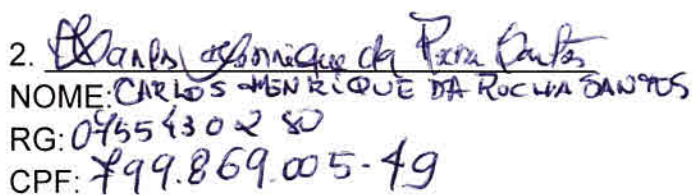 2. Carlos Henrique da Rocha Santos
NOME: CARLOS HENRIQUE DA ROCHA SANTOS
RG: 0755430280
CPF: 799.869.005-49